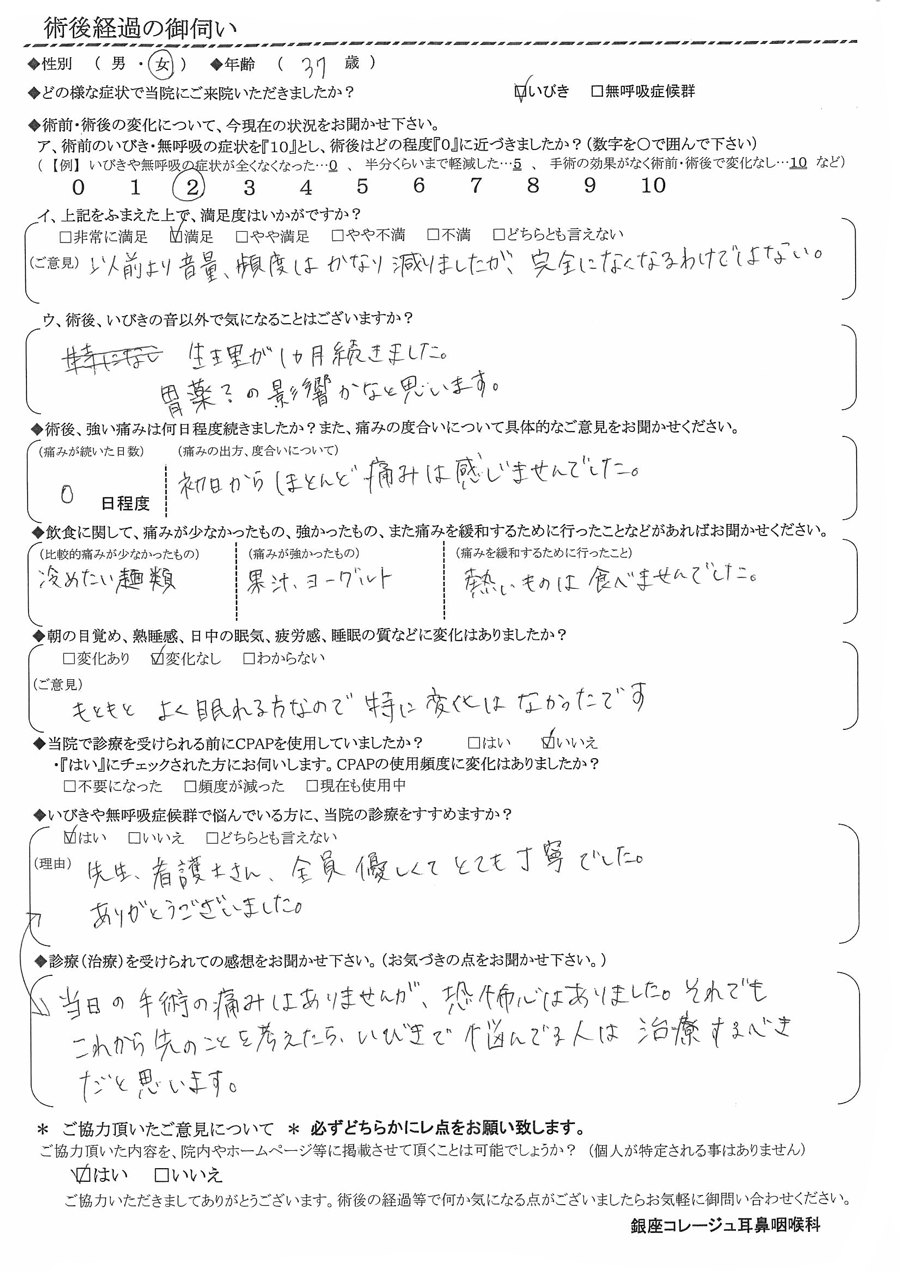 術後経過の御伺い
◆性別 （ 男 ・ 女 ） ◆年齢 （ 37 歳 ）
◆どの様な症状で当院にご来院いただきましたか？ ☑いびき □無呼吸症候群
◆術前・術後の変化について、今現在の状況をお聞かせ下さい。
ア、術前のいびき・無呼吸の症状を『10』とし、術後はどの程度『0』に近づきましたか？（数字を〇で囲んで下さい）
（【例】 いびきや無呼吸の症状が全くなくなった…0 、 半分くらいまで軽減した…5 、 手術の効果がなく術前・術後で変化なし…10 など）
0 1 2 3 4 5 6 7 8 9 10
イ、上記をふまえた上で、満足度はいかがですか？
□非常に満足 ☑満足 □やや満足 □やや不満 □不満 □どちらとも言えない
（ご意見） 以前より音量、頻度はかなり減りましたが、完全になくなるわけではない。
ウ、術後、いびきの音以外で気になることはございますか？
特になし 生理が1ヵ月続きました。
胃薬?の影響かなと思います。
◆術後、強い痛みは何日程度続きましたか？また、痛みの度合いについて具体的なご意見をお聞かせください。
（痛みが続いた日数） （痛みの出方、度合いについて）
0 日程度 初日からほとんど痛みは感じませんでした。
◆飲食に関して、痛みが少なかったもの、強かったもの、また痛みを緩和するために行ったことなどがあればお聞かせください。
（比較的痛みが少なかったもの） （痛みが強かったもの） （痛みを緩和するために行ったこと）
冷めたい麺類 果汁、ヨーグルト 熱いものは食べませんでした。
◆朝の目覚め、熟睡感、日中の眠気、疲労感、睡眠の質などに変化はありましたか？
□変化あり ☑変化なし □わからない
（ご意見）
もともと よく眠れる方なので 特に変化はなかったです
◆当院で診療を受けられる前にCPAPを使用していましたか？ □はい ☑いいえ
・『はい』にチェックされた方にお伺いします。CPAPの使用頻度に変化はありましたか？
□不要になった □頻度が減った □現在も使用中
◆いびきや無呼吸症候群で悩んでいる方に、当院の診療をすすめますか？
☑はい □いいえ □どちらとも言えない
（理由） 先生、看護士さん、全員優しくてとても丁寧でした。
ありがとうございました。
◆診療（治療）を受けられての感想をお聞かせ下さい。（お気づきの点をお聞かせ下さい。）
当日の手術の痛みはありませんが、恐怖心はありました。それでも
これから先のことを考えたら、いびきで悩んでる人は治療するべき
だと思います。
＊ ご協力頂いたご意見について ＊ 必ずどちらかにレ点をお願い致します。
ご協力頂いた内容を、院内やホームページ等に掲載させて頂くことは可能でしょうか？ （個人が特定される事はありません）
☑はい □いいえ
ご協力いただきましてありがとうございます。術後の経過等で何か気になる点がございましたらお気軽に御問い合わせください。
銀座コレージュ耳鼻咽喉科